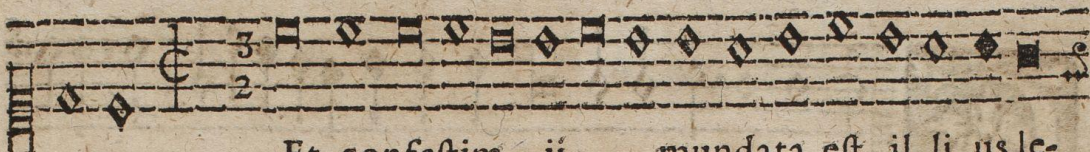 3
2
Et confestim ij mundata est il li us le-